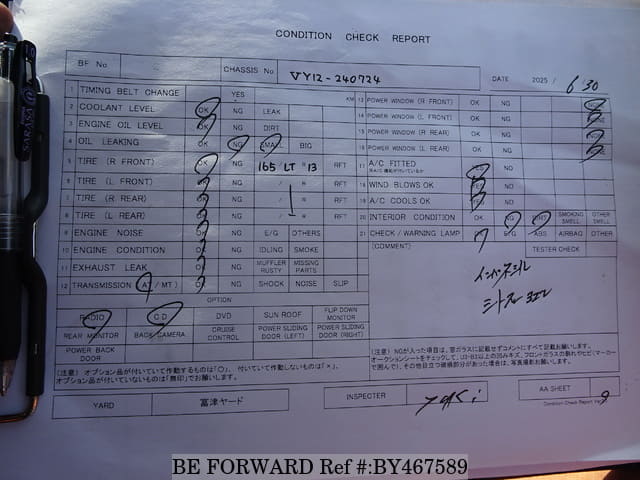 CONDITION CHECK REPORT
BF No CHASSIS No VY12-240724 DATE 2025/ 6 30
1 TIMING BELT CHANGE YES KM
2 COOLANT LEVEL OK NG LEAK
3 ENGINE OIL LEVEL OK NG DIRT
4 OIL LEAKING OK NG SMALL BIG
5 TIRE (R FRONT) OK NG 165 LT R 13 RFT
6 TIRE (L FRONT) OK NG / R RFT
7 TIRE (R REAR) OK NG / R RFT
8 TIRE (L REAR) OK NG / R RFT
9 ENGINE NOISE OK NG E/G OTHERS
10 ENGINE CONDITION OK NG IDLING SMOKE
11 EXHAUST LEAK OK NG MUFFLER RUSTY MISSING PARTS
12 TRANSMISSION (AT / MT) OK NG SHOCK NOISE SLIP
13 POWER WINDOW (R FRONT) OK NG NONE
14 POWER WINDOW (L FRONT) OK NG NONE
15 POWER WINDOW (R REAR) OK NG NONE
16 POWER WINDOW (L REAR) OK NG NONE
17 A/C FITTED YES NO
18 WIND BLOWS OK YES NO
19 A/C COOLS OK YES NO
20 INTERIOR CONDITION OK NG DIRT SMOKING SMELL OTHER SMELL
21 CHECK / WARNING LAMP E/G ABS AIRBAG OTHER
(COMMENT) TESTER CHECK
OPTION
RADIO CD DVD SUN ROOF FLIP DOWN MONITOR
REAR MONITOR BACK CAMERA CRUISE CONTROL POWER SLIDING DOOR (LEFT) POWER SLIDING DOOR (RIGHT)
POWER BACK DOOR
(注意) オプション品が付いていて作動するものは「○」、付いていて作動しないものは「×」、
オプション品が付いていないものは「無印」でお願いします。
(注意) NGが入った項目は、窓ガラスに記載せずコメントにすべて記載お願いします。
YARD 富津ヤード INSPECTER AA SHEET
Condition Check Report Ver 9
BE FORWARD Ref #:BY467589
SARASA